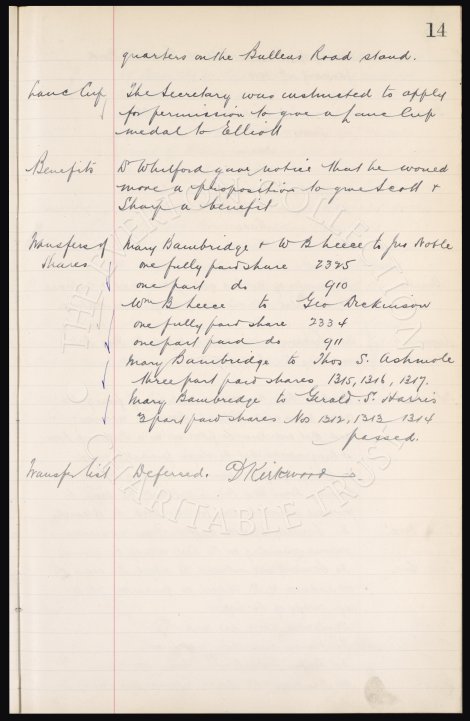 14
quarters on the Bullens Road stand.
Lanc Cup The Secretary was instructed to apply
for permission to give a Lanc Cup
medal to Elliott
Benefits Dr Whitford gave notice that he would
move a proposition to give Scott &
Sharp a benefit
Transfers of Mary Bainbridge & W B Leece to Jno Noble
shares one fully paid share 2325
one part do 910
Wm B Leece to Geo Dickinson
one fully paid share 2334
one part paid do 911
Mary Bainbridge to Thos S. Ashmole
three part paid shares 1315, 1316, 1317.
Mary Bainbridge to Gerald S. Harris
3 part paid shares Nos 1312, 1313 1314
passed.
Transfer list Deferred. D Kirkwood
THE EVERTON COLLECTION
CHARITABLE TRUST